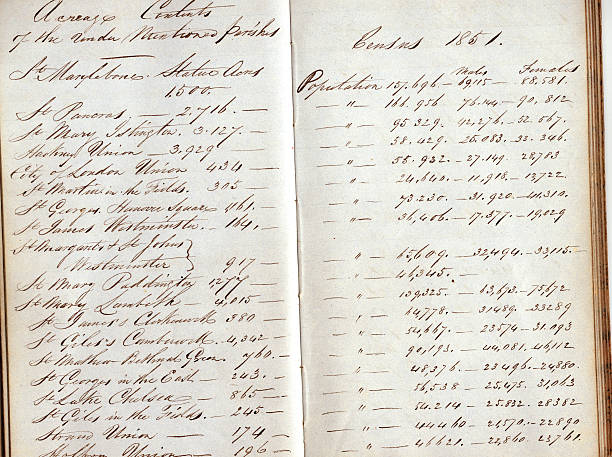 Acreage Contents
of the under Mentioned Parishes
St Marylebone. Statue Acres
1,500.
St Pancras — 2.716. —
St Mary Islington. 3.127. —
Hackney Union — 3.929
City of London Union 434 —
St Martin in the Fields. 305 —
St Georges Hanover Square 1161. —
St James Westminster. — 164. —
St Margarets & St Johns
Westminster } 917 —
St Mary Paddington 1277 —
St Mary Lambeth — 4,015 —
St James's Clerkenwell 380
St Giles's Camberwell. — 4,342 —
St Mathew Bethnal Green. 760. —
St Georges in the East — 243. —
St Luke Chelsea — 865 —
St Giles in the Fields. — 245 —
Strand Union — 174 —
Holborn Union — 196 —
Census 1851.
Males Females
Population 157,696 — 69,115 — 88,581.
— " — 166,956 76,144 — 90,812
— " — 95.329. 42,276. — 
— " — 58.429. 25,083. — 33.346.
— " — 55,932. — 27,149. 28,783
— " — 24,640. — 11,918. 12,722.
— " — 73.230. — 31.920 — 41,310.
— " — 36,406. — 17,377. — 19,029
— " — 65,609. — 32,494. — 33,115. —
— " — 46,345. —
— " — 139,325. — 63,673. — 75,672
— " — 64,778. — 31489. — 33289
— " — 54,667. — 23574 — 31.093
— " — 90,193. — 44,081. — 46,112
— " — 48,376. — 23,496. — 24,880.
— " — 56,538 — 25,475. 31,063
— " — 54.214 — 25.832. 28382
— " — 44460 — 21,570. — 22,890
— " — 46621. — 22,860. 23,761.